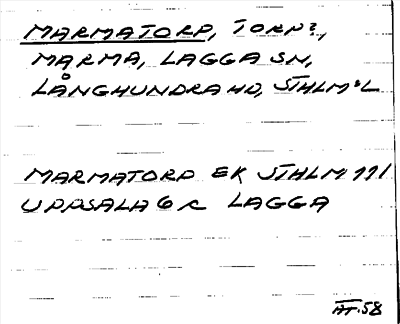 MARMATORP, TORP?,
MARMA, LAGGA SN,
LÅNGHUNDRA HD, STHLM:S L
MARMATORP EK STHLM 111
UPPSALA 6 C LAGGA
AT. 58